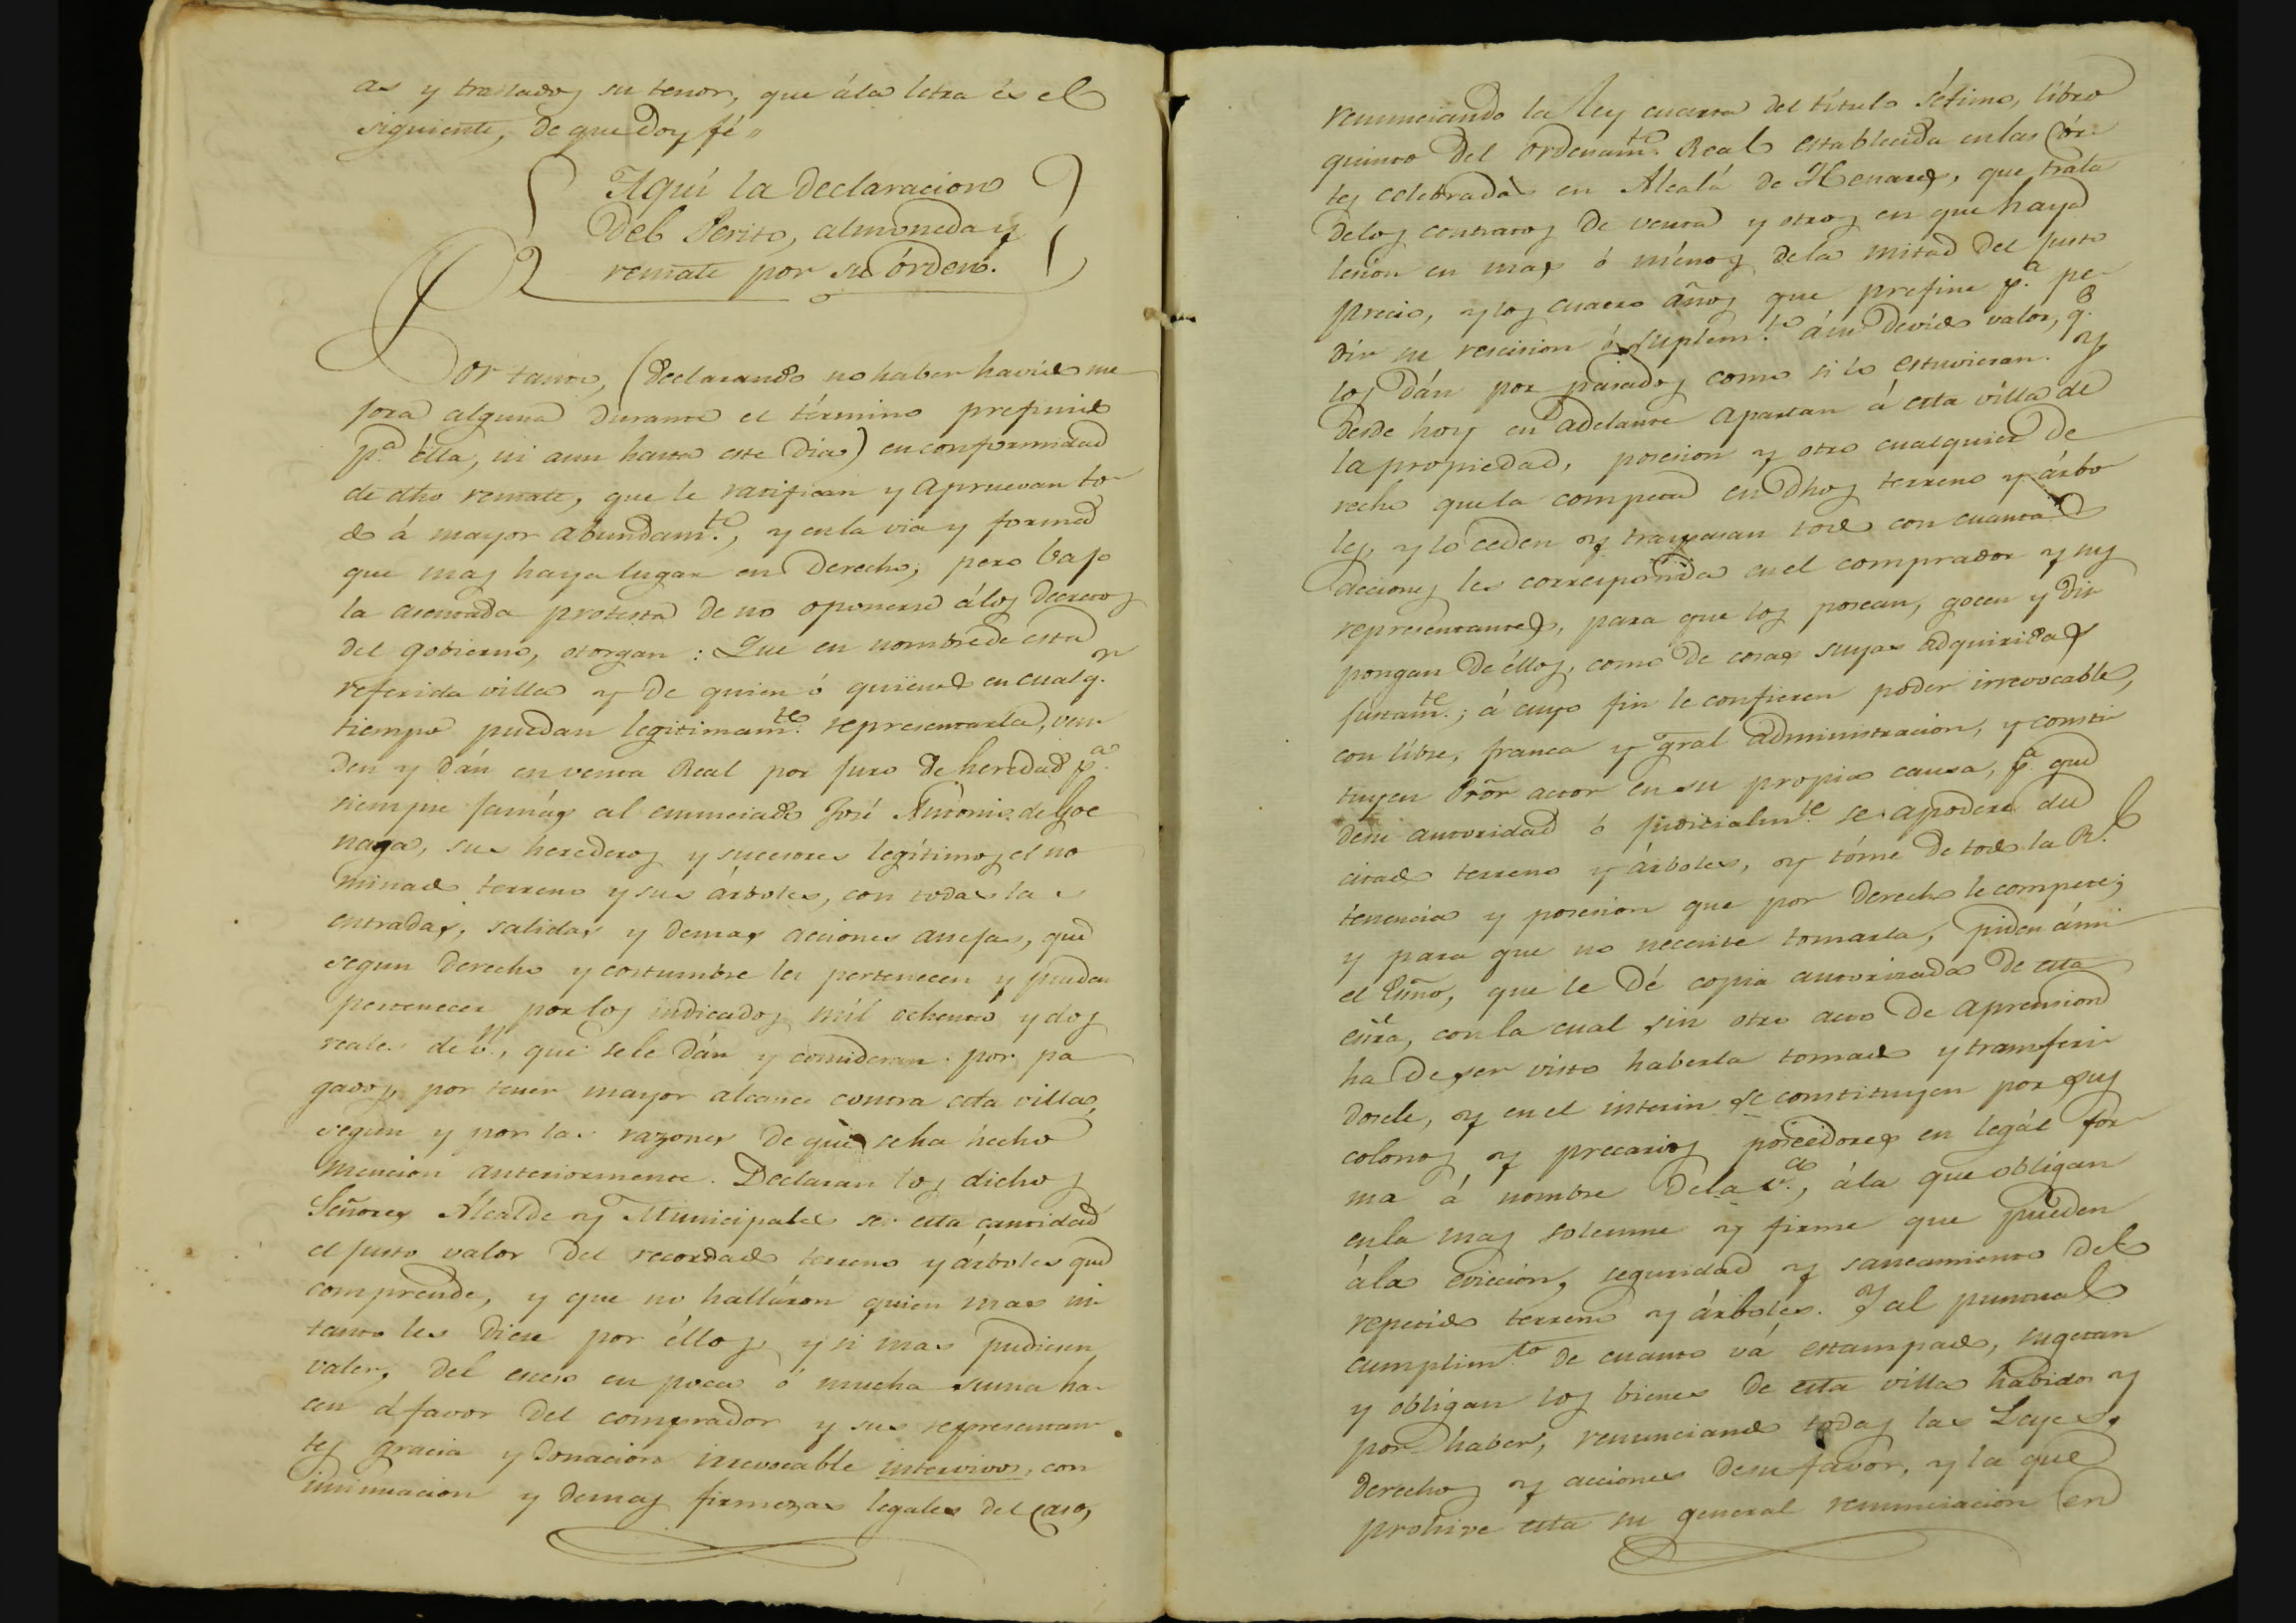 as y traslados su tenor, que á la letra és el
siguiente, de que doy fé
Aquí la declaracion
del Perito, almoneda y
remate por su órden.
Por tanto, (declarando no haber havido me
jora alguna durante el término prefinido
p.ª élla, ni aun hasta este dia) en conformidad
de dho remate, que le ratifican y apruevan to
do á mayor abundam.to, y en la via y forma
que mas haya lugar en derecho, pero bajo
la asentada protesta de no oponerse á los decretos
del gobierno, otorgan: Que en nombre de esta
referida villa y de quien ó quiénes en cualq.r
tiempo puedan legitimam.te representarla, ven
den y dán en venta Real por juro de heredad p.ª
siempre jamás al enunciado José Antonio de Goe
naga, sus herederos y sucesores legítimos el no
minado terreno y sus árboles, con todas las
entradas, salidas y demas acciones anejas, que
segun derecho y costumbre les pertenecen y pueden
pertenecer por los indicados mil ochenta y dos
reales de v.n, que se le dán y consideran por pa
gados, por tener mayor alcance contra esta villa,
segun y por las razones de que se ha hecho
mencion anteriormente. Declaran los dichos
Señores Alcalde y Municipales ser esta cantidad
el justo valor del recordado terreno y árboles que
comprende, y que no halláron quien mas ni
tanto les diese por éllos, y si mas pudiesen
valer, del exceso en poca ó mucha suma ha
cen á favor del comprador y sus representan
tes gracia y donacion irrevocable intervivos, con
insinuacion y demas firmezas legales del caso,
renunciando la ley cuarta del título sétimo, libro
quinto del ordenam.to Real establecida en las Cór
tes celebradas en Alcalá de Henares, que trata
de los contratos de venta y otros en que haya
lesion en mas ó ménos de la mitad del justo
precio, y los cuatro años que prefine p.ª pe
dir su rescision ó suplem.to á su devido valor, q.e
los dán por pasados como si lo estuvieran. Y
desde hoy en adelante apartan á esta villa de
la propiedad, posesion y otro cualquier de
recho que la competa en dhos terreno y árbo
les, y lo ceden y traspasan todo con cuantas
acciones les corresponda en el comprador y sus
representantes, para que los posean, gocen y dis
pongan de éllos, como de cosas suyas adquiridas
justam.te; á cuyo fin le confieren poder irrevocable,
con libre, franca y gral administracion, y consti
tuyen Prõr actor en su propia causa, p.ª que
de su autoridad ó judicialm.te se apodere del
citado terreno y árboles, y tóme de todo la R.l
tenencia y posesion que por derecho le compete;
y para que no necesite tomarla, piden á mi
el Esño, que le dé copia autorizada de esta
esñra, con la cual sin otro acto de aprension
ha de ser visto haberla tomado y transferi
dosele, y en el interin se constituyen por sus
colonos y precarios poseedores en legál for
ma á nombre de la v.ª, á la que obligan
en la mas solemne y firme que pueden
á la eviccion, seguridad y saneamiento del
repetido terreno y árboles. Y al puntual
cumplim.to de cuanto vá estampado, sugetan
y obligan los bienes de esta villa habidos y
por haber, renunciando todas las Leyes,
derechos y acciones de su favor, y la que
prohive esta su general renunciacion en